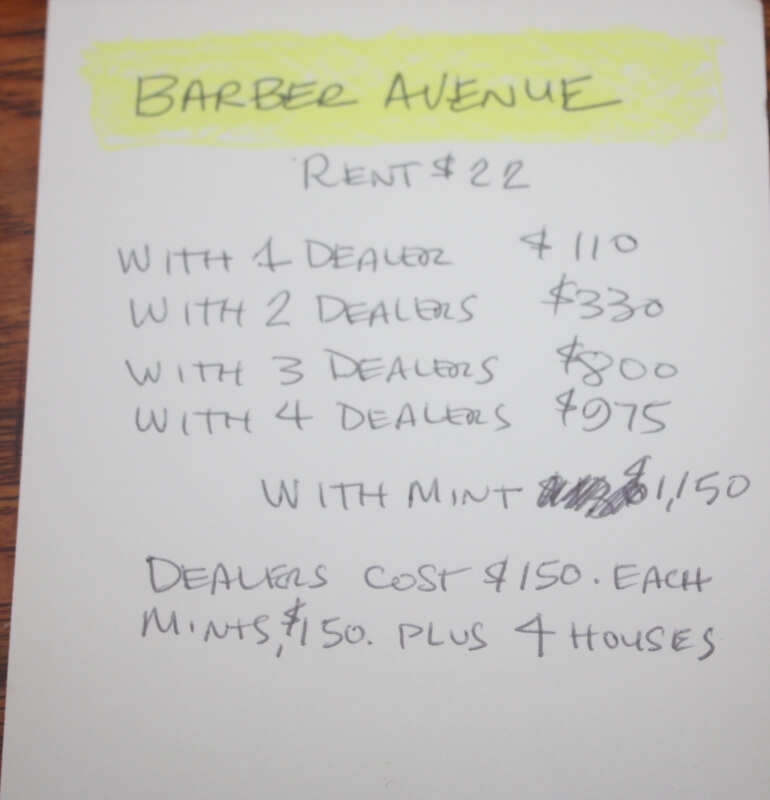 BARBER AVENUE
RENT $22
WITH 1 DEALER $110
WITH 2 DEALERS $330
WITH 3 DEALERS $800
WITH 4 DEALERS $975
WITH MINT $1,150
DEALERS COST $150. EACH
MINTS, $150. PLUS 4 HOUSES